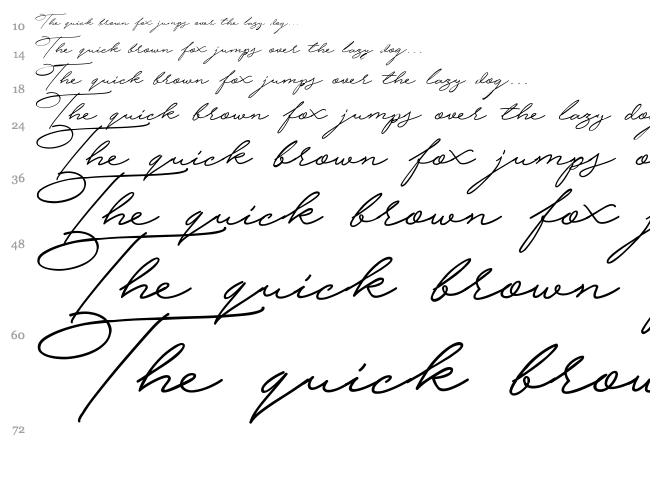 10 The quick brown fox jumps over the lazy dog...
14 The quick brown fox jumps over the lazy dog...
18 The quick brown fox jumps over the lazy dog...
24 The quick brown fox jumps over the lazy dog
36 The quick brown fox jumps o
48 The quick brown fox j
60 The quick brown
72 The quick brow